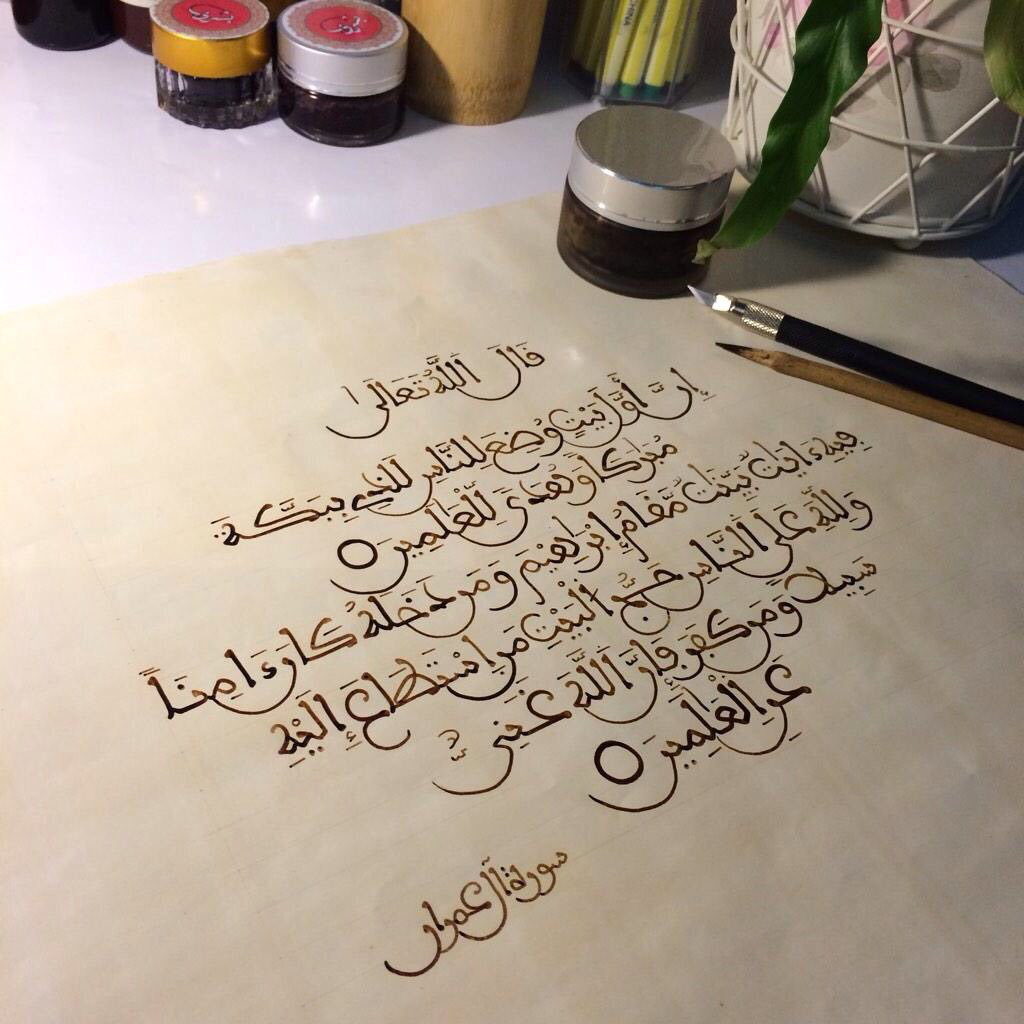 قَالَ اَللَّهُ تَعَالَى
إِنَّ أَوَّلَ بَيْتٍ وُضِعَ لِلنَّاسِ لَلَذِے بِبَكَّةَ
مُبَٰرَكاٗ وَهُدىٗ لِّلْعَٰلَمِينَ
فِيهِ ءَايَٰتُۢ بَيِّنَٰتٞ مَّقَامُ إِبْرَٰهِيمَ وَمَن دَخَلَهُۥ كَانَ ءَامِناٗ
وَلِلهِ عَلَى اَلنَّاسِ حَجُّ اُلْبَيْتِ مَنِ اِسْتَطَاعَ إِلَيْهِ
سَبِيلاٗ وَمَن كَفَرَ فَإِنَّ اَللَّهَ غَنِيٌّ
عَنِ اِلْعَٰلَمِينَ
سورة آل عمران